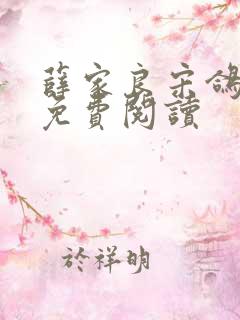 薛家良宋鴿
免費閱讀
於祥明